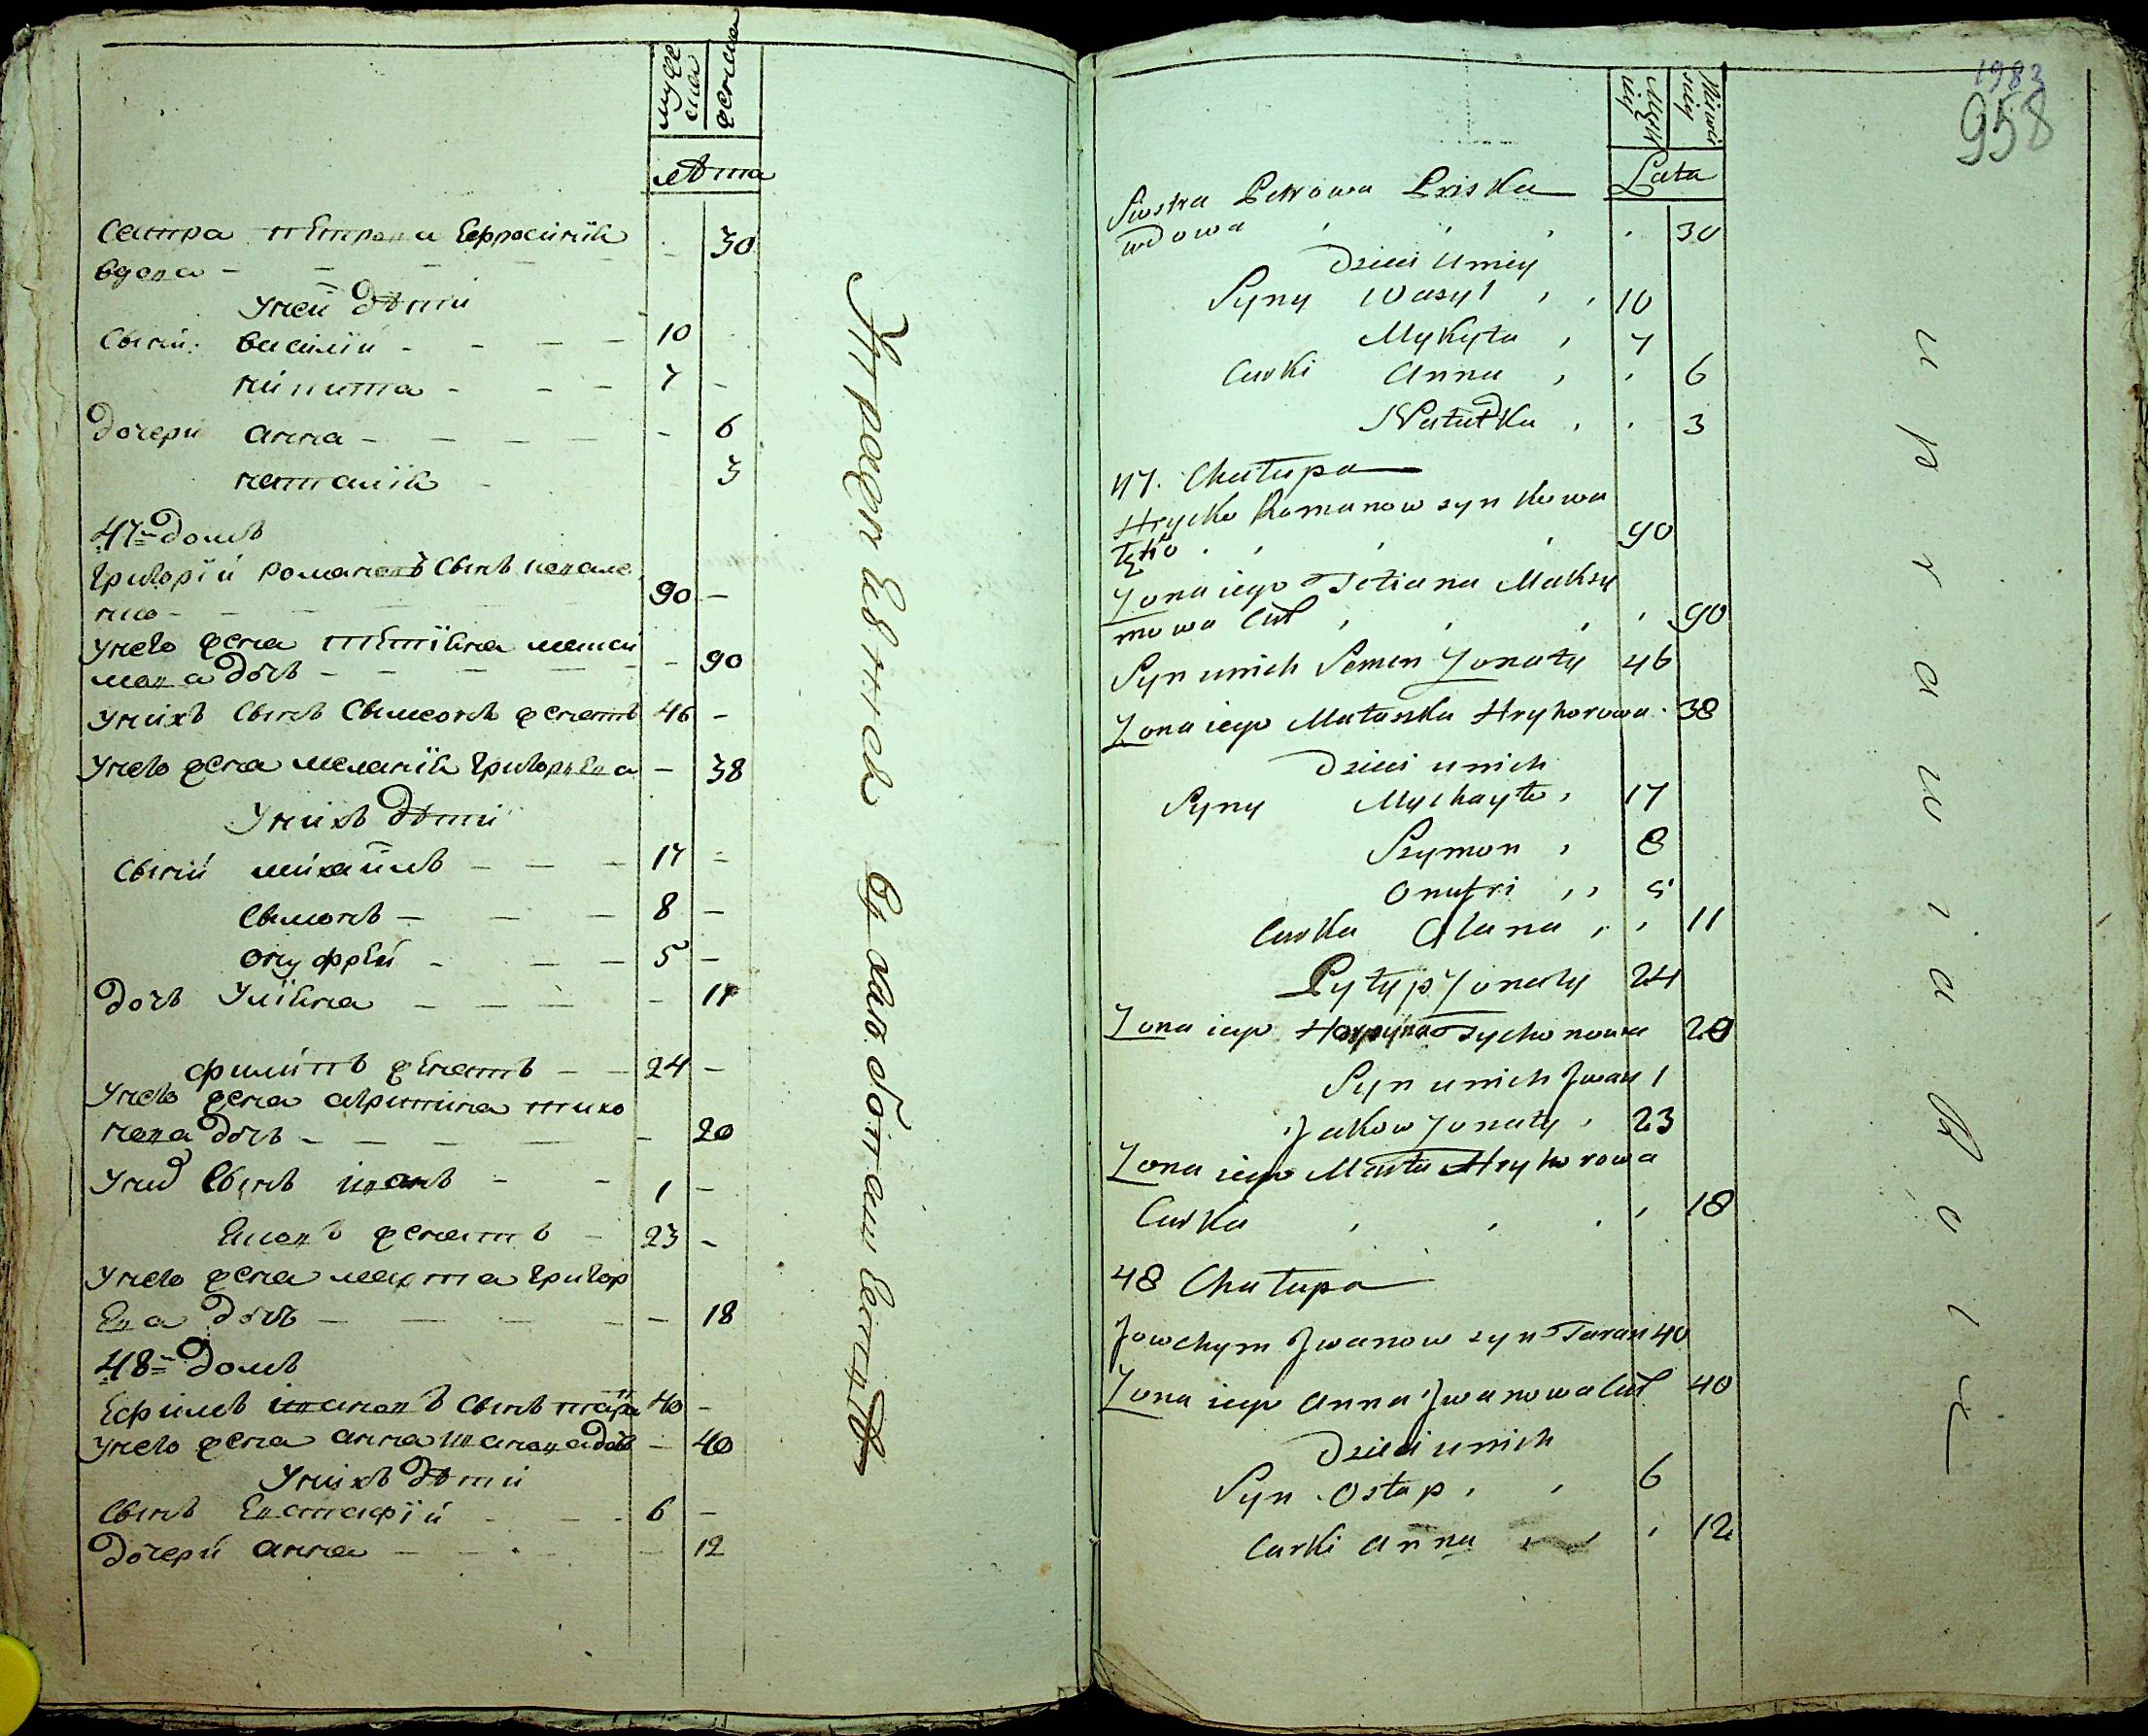 мужеска
женска
лѣта
Сестра петрова Ефросинія
вдова - 30
У ней дѣти
Сыни: василій - 10
никита - 7
дочери анна - 6
наталія 3
47й домъ
Григорій романовъ Сынъ ковале
нко - 90
У него жена тетіяна макси
мова дочь - 90
У нихъ Сынъ Сымеонъ женатъ 46
У него жена меланія григорьева - 38
У нихъ дѣти
Сыни михайлъ - 17
Сымонъ - 8
онуфрей - 5
дочь Уліяна - 11
филипъ женатъ - 24
У него жена агрипина тихо
нова дочь - 20
У них Сынъ иванъ - 1
Яковъ женатъ - 23
У него жена марта григор
Ева дочь - 18
48й домъ
Ефимъ ивановъ Сынъ таран 40
У него жена анна иванова дочь - 40
У нихъ дѣти
Сынъ Евстафій - 6
дочери анна - 12
1983
958
Męzkiey
Żeńskiey
Lata
Siostra Petrowa Priska
wdowa 30
Dzieci u niey
Syny Wasyl 10
Mykyta 7
Curki Anna 6
Natałka 3
47. Chałupa
Hrycko Romanow syn Kowa
lenko 90
Zona iego Tetiana Maksy
mowa Cur 90
Syn u nich Semen Zonaty 46
Zona iego Małaszka Hryhorowa 38
Dzieci u nich
Syny Mychayło 17
Szymon 8
Onufri 5
Curka Ulana 11
Pyłyp Zonaty 24
Zona iego Horpyna Tychonowa 20
Syn u nich Jwan 1
Jakow Zonaty 23
Zona iego Marta Hryhorowa
Curka 18
48 Chałupa
Jowchym Jwanow syn Taran 40
Zona iego Anna Jwanowa Cur 40
Dzieci u nich
Syn Ostap 6
Curki Anna 12